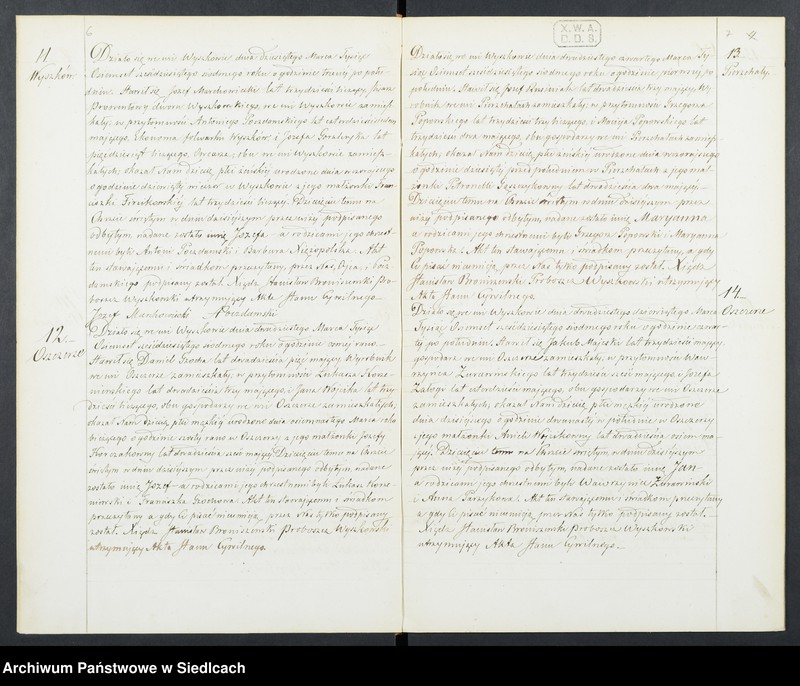 11
Wyszków.
6
Działo się we wsi Wyszkowie dnia dziesiątego Marca Tysiąc
Osiemset sześćdziesiątego siódmego roku o godzinie trzeciej po połu-
dniu. Stawił się Józef Marchowiecki lat trzydzieści liczący, Pisarz
Prowentowy dworu Wyszkowskiego, we wsi Wyszkowie zamiesz-
kały, w przytomności Antoniego Pozdamskiego lat czterdzieści
mającego, Ekonoma folwarku Wyszków, i Józefa lat
pięćdziesiąt liczącego, Owczarza, obu we wsi Wyszkowie zamiesz-
kałych; okazał Nam dziecię płci żeńskiej urodzone dnia wczorajszego
o godzinie dziesiątej wieczór w Wyszkowie z jego małżonki Fran-
ciszki lat trzydzieści liczącej. Dziecięciu temu na
Chrzcie świętym w dniu dzisiejszym przez niżej podpisanego
odbytym, nadane zostało imię Józefa a rodzicami jego chrzest-
nemi byli Antoni Pozdamski i Barbara Niezopolska. Akt
ten stawającemu i świadkom przeczytany, przez Nas, Ojca, i Poz-
damskiego podpisany został. Xiądz Stanisław Broniszewski Pro-
boszcz Wyszkowski utrzymujący Akta Stanu Cywilnego.
Józef Marchowiecki A Pozdamski
12.
Oszczerze
Działo się we wsi Wyszkowie dnia dwudziestego Marca Tysiąc
Osiemset sześćdziesiątego siódmego roku o godzinie ósmej rano.
Stawił się Daniel Groda lat dwadzieścia pięć mający, Wyrobnik
we wsi Oszczerze zamieszkały, w przytomności Łukasza
lat dwadzieścia trzy mającego, i Jana Wójcika lat trzy-
dzieści liczącego, obu gospodarzy we wsi Oszczerze zamieszkałych;
okazał Nam dziecię płci męzkiej urodzone dnia osiemnastego Marca roku
bieżącego o godzinie szóstej rano w Oszczerzy z jego małżonki Józefy
Korczakowny lat dwadzieścia sześć mającej. Dziecięciu temu na Chrzcie
świętym w dniu dzisiejszym przez niżej podpisanego odbytym, nadane
zostało imię Józef a rodzicami jego chrzestnemi byli Łukasz
i Franciszka Grochowa. Akt ten stawającemu i świadkom
przeczytany a gdy ci pisać nieumieją, przez Nas tylko podpisany
został. Xiądz Stanisław Broniszewski Proboszcz Wyszkowski
utrzymujący Akta Stanu Cywilnego.
X.W.A.
D.D.B.
7
13
Pierzchały.
Działo się we wsi Wyszkowie dnia dwudziestego czwartego Marca Ty-
siąc Osiemset sześćdziesiątego siódmego roku o godzinie pierwszej po
południu. Stawił się Józef lat dwadzieścia trzy mający, Wy-
robnik we wsi Pierzchałach zamieszkały, w przytomności Grzegorza
Popowskiego lat trzydzieści trzy liczącego, i Macieja Popowskiego lat
trzydzieści dwa mającego, obu gospodarzy we wsi Pierzchałach zamiesz-
kałych; okazał Nam dziecię płci żeńskiej urodzone dnia wczorajszego
o godzinie dziesiątej przed południem w Pierzchałach z jego mał-
żonki Petronelli lat dwadzieścia dwa mającej.
Dziecięciu temu na Chrzcie świętym w dniu dzisiejszym przez
niżej podpisanego odbytym, nadane zostało imię Maryanna
a rodzicami jego chrzestnemi byli Grzegorz Popowski i Maryanna
Popowska. Akt ten stawającemu i świadkom przeczytany, a gdy
ci pisać nieumieją, przez Nas tylko podpisany został. Xiądz
Stanisław Broniszewski Proboszcz Wyszkowski utrzymujący
Akta Stanu Cywilnego.
14
Oszczerze
Działo się we wsi Wyszkowie dnia dwudziestego dziewiątego Marca
Tysiąc Osiemset sześćdziesiątego siódmego roku o godzinie czwar-
tej po południu. Stawił się Jakub Majeski lat trzydzieści mający,
gospodarz we wsi Oszczerze zamieszkały, w przytomności Waw-
rzyńca Żurawińskiego lat trzydzieści sześć mającego i Józefa
Załogi lat czterdzieści mającego, obu gospodarzy we wsi Oszczerze
zamieszkałych; okazał Nam dziecię płci męzkiej urodzone
dnia dzisiejszego o godzinie dwunastej w południe w Oszczerzy
z jego małżonki Anieli Wójcikowny lat dwadzieścia osiem ma-
jącej. Dziecięciu temu na Chrzcie świętym w dniu dzisiejszym
przez niżej podpisanego odbytym, nadane zostało imię Jan
a rodzicami jego chrzestnemi byli Wawrzyniec Żurawiński
i Anna Parzykowa. Akt ten stawającemu i świadkom przeczytany
a gdy ci pisać nieumieją, przez Nas tylko podpisany został.
Xiądz Stanisław Broniszewski Proboszcz Wyszkowski
utrzymujący Akta Stanu Cywilnego.
Archiwum Państwowe w Siedlcach